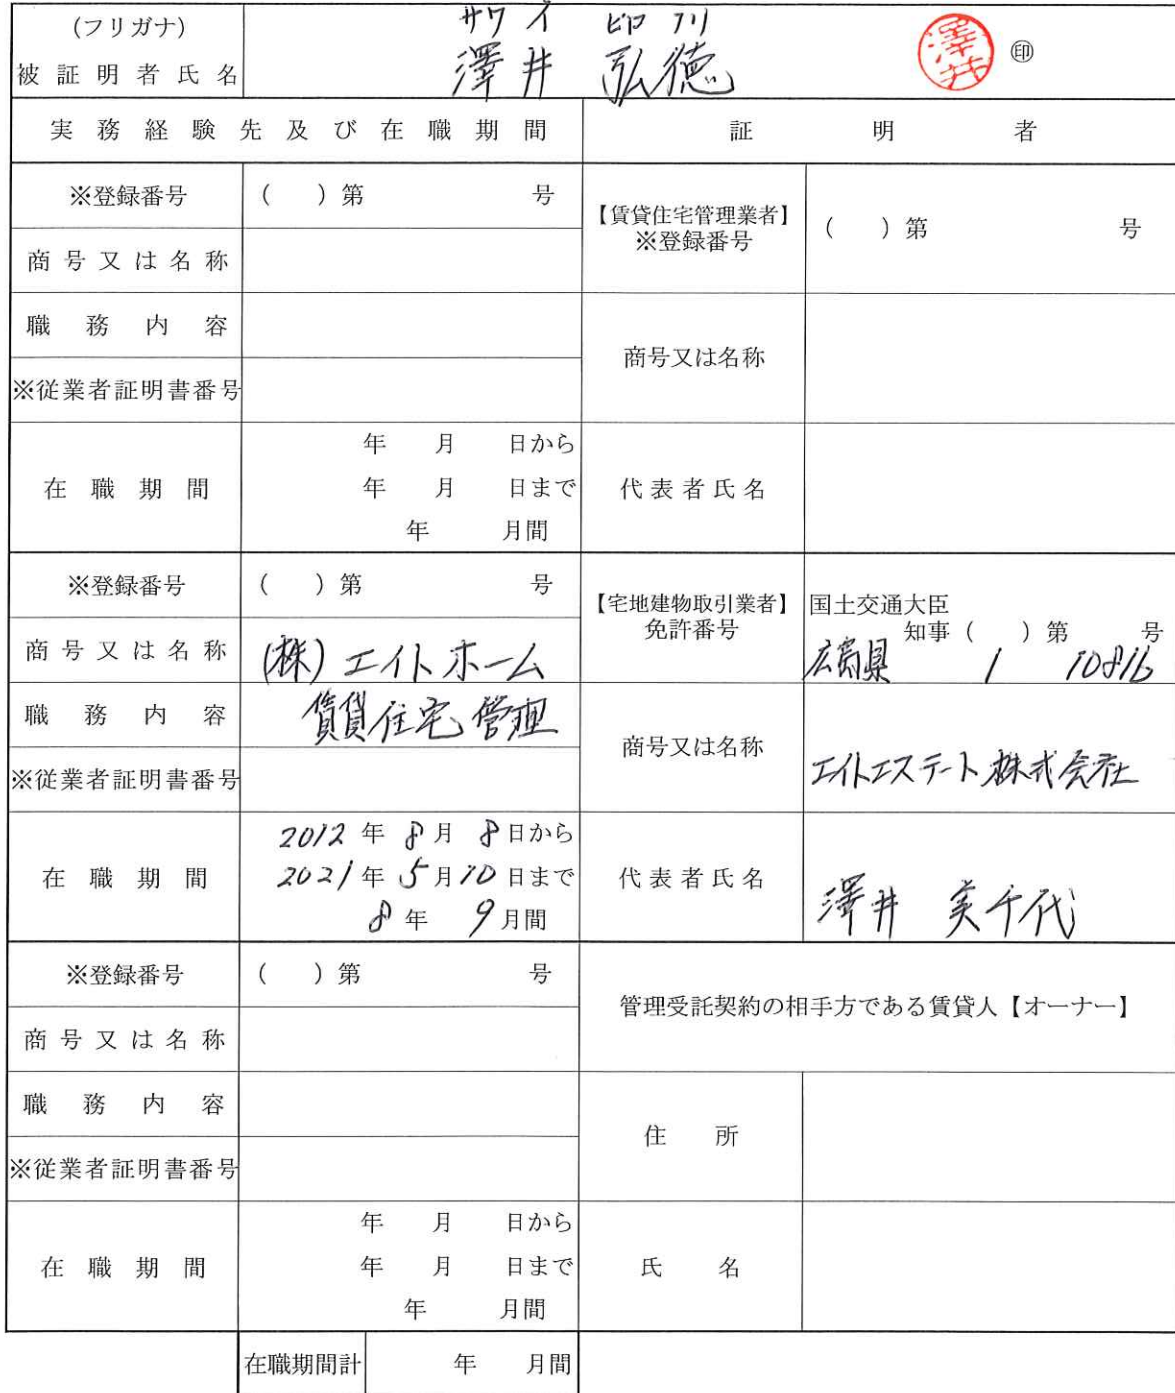 (フリガナ) サワイ ヒロノリ
被証明者氏名 澤井 弘徳 澤井 ㊞
実務経験先及び在職期間 証明者
※登録番号 ( )第 号
商号又は名称
職務内容
※従業者証明書番号
在職期間 年 月 日から
年 月 日まで
年 月間
【賃貸住宅管理業者】
※登録番号 ( )第 号
商号又は名称
代表者氏名
※登録番号 ( )第 号
商号又は名称 (株)エイトホーム
職務内容 賃貸住宅管理
※従業者証明書番号
在職期間 2012年 8月 8日から
2021年 5月10日まで
8年 9月間
【宅地建物取引業者】 国土交通大臣
免許番号 広島県 知事( 1 )第 10816 号
商号又は名称 エイトエステート株式会社
代表者氏名 澤井 美千代
※登録番号 ( )第 号
商号又は名称
職務内容
※従業者証明書番号
在職期間 年 月 日から
年 月 日まで
年 月間
管理受託契約の相手方である賃貸人【オーナー】
住所
氏名
在職期間計 年 月間